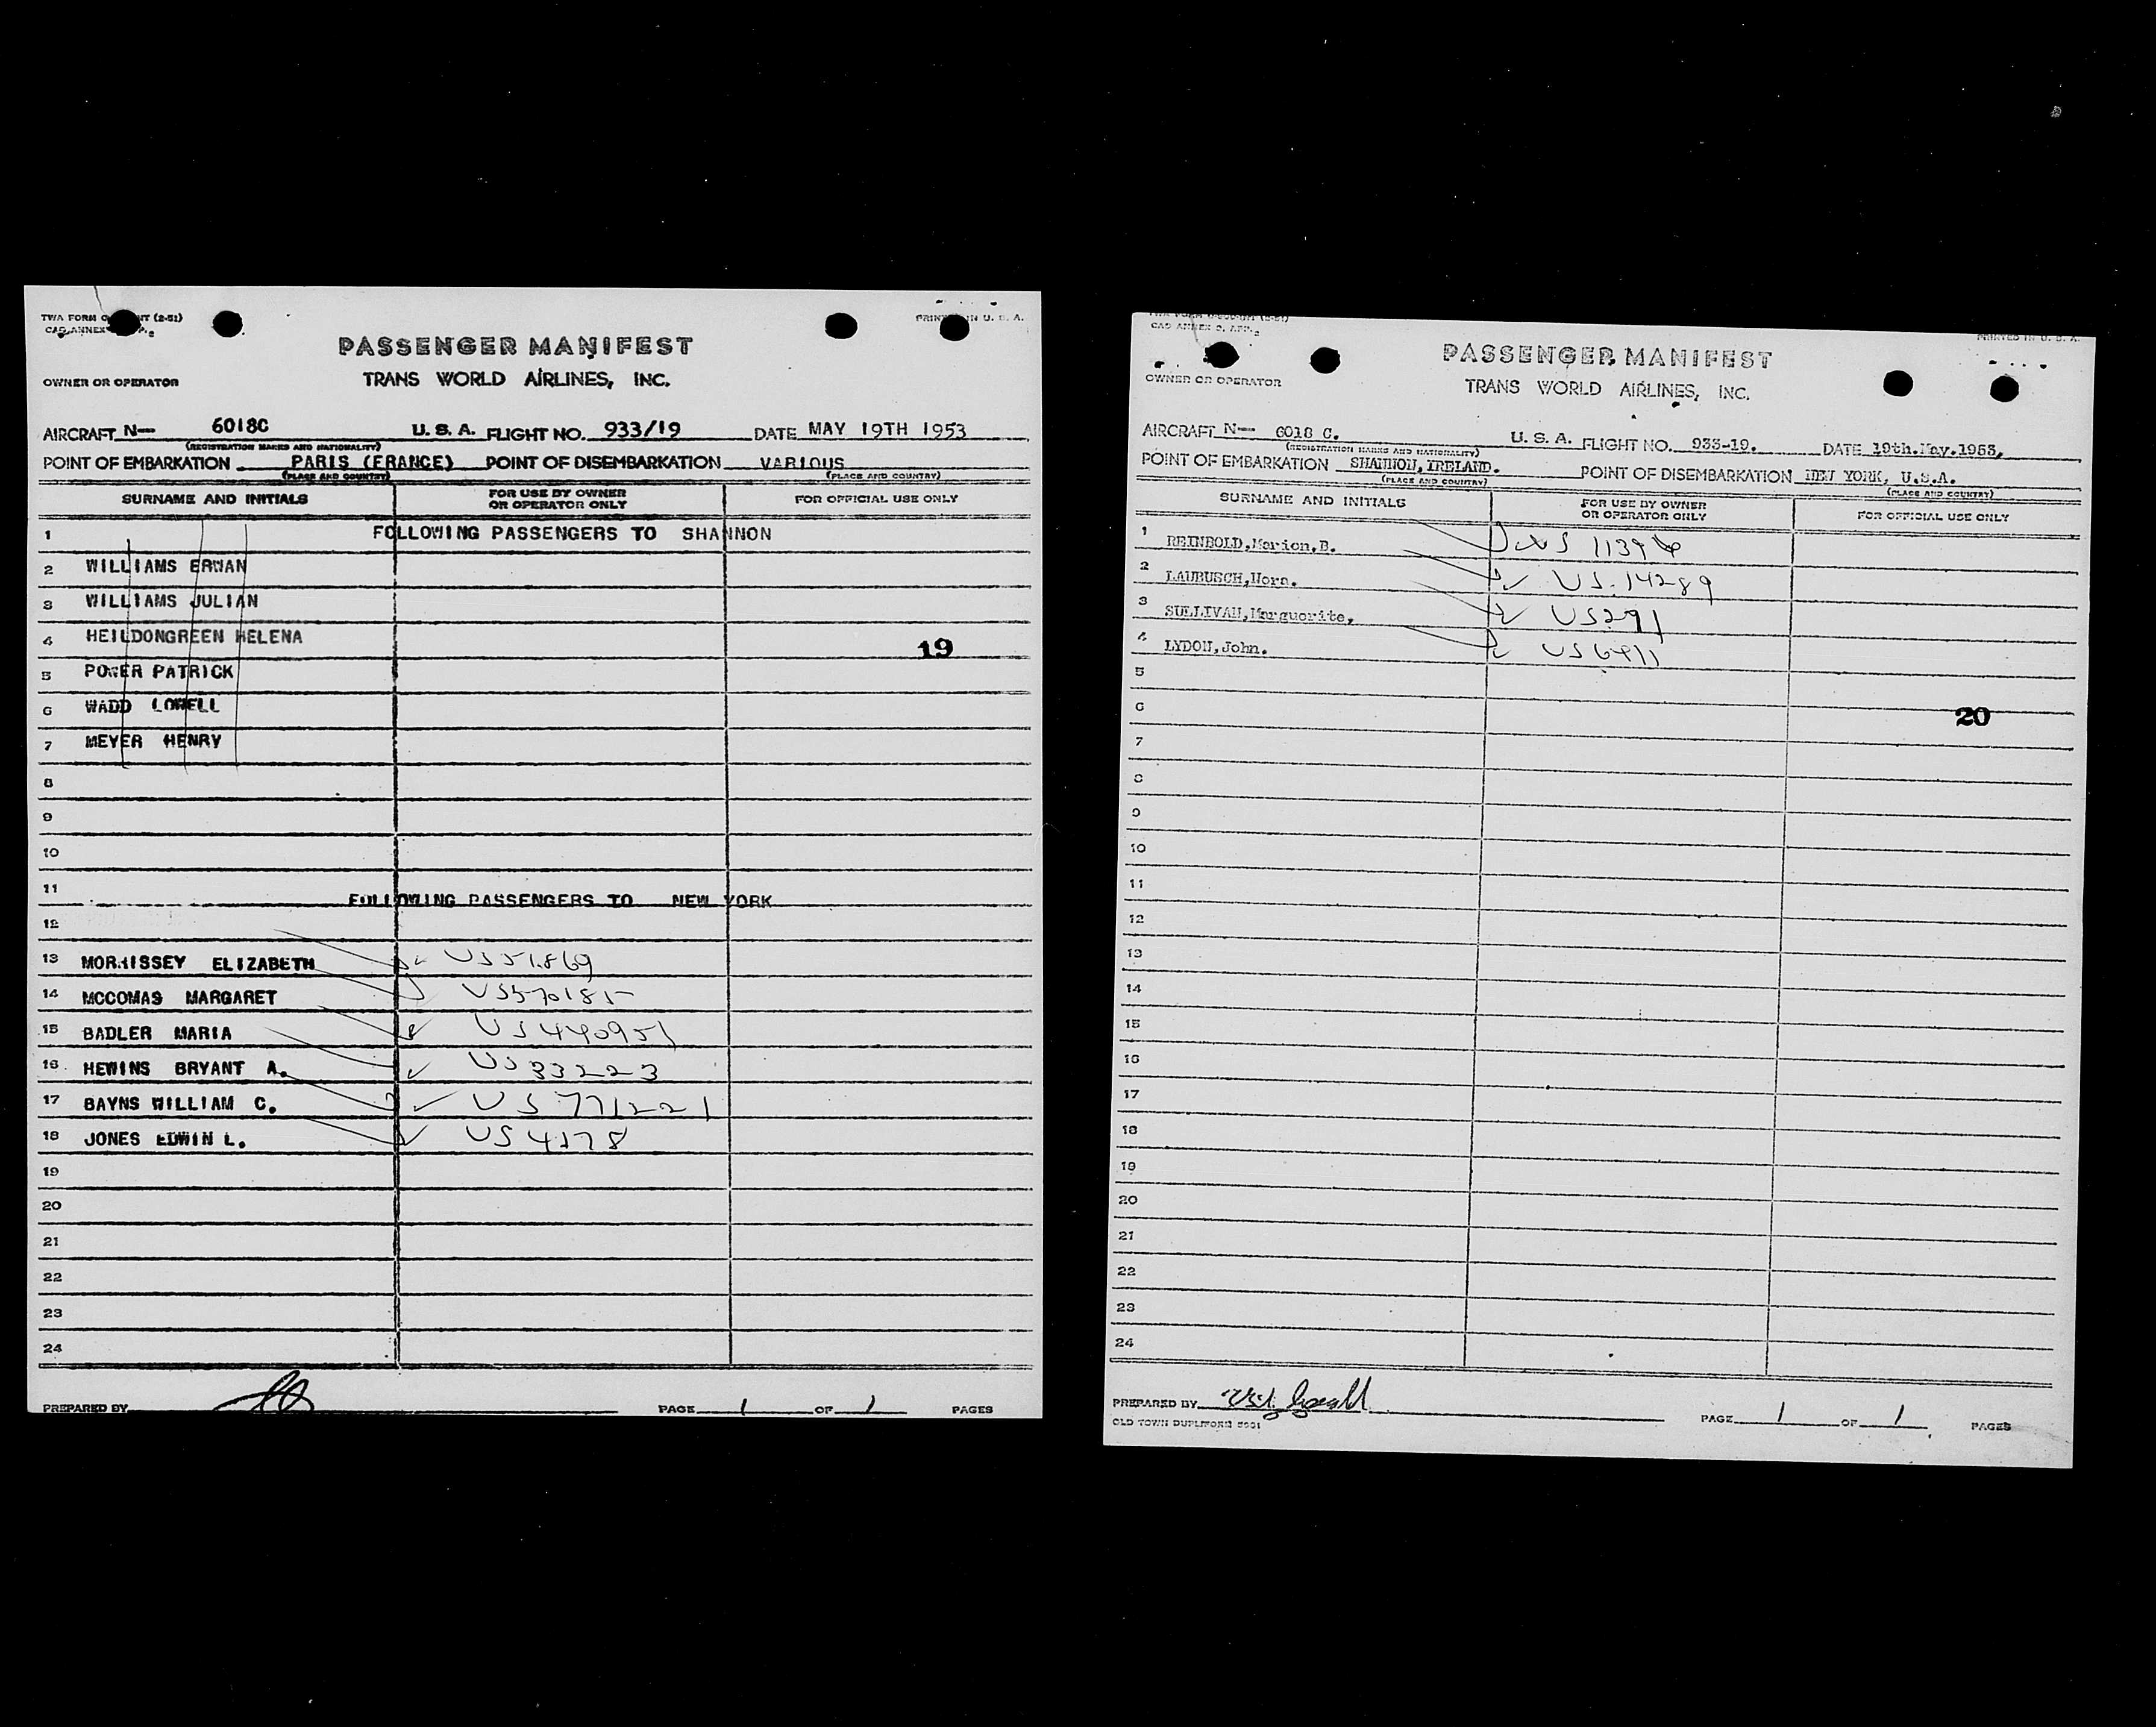 PASSENGER MANIFEST
OWNER OR OPERATOR TRANS WORLD AIRLINES, INC.
AIRCRAFT N— 6018C U. S. A. FLIGHT NO. 933/19 DATE MAY 19TH 1953
(REGISTRATION MARKS AND NATIONALITY)
POINT OF EMBARKATION PARIS (FRANCE) POINT OF DISEMBARKATION VARIOUS
(PLACE AND COUNTRY) (PLACE AND COUNTRY)
SURNAME AND INITIALS FOR USE BY OWNER OR OPERATOR ONLY FOR OFFICIAL USE ONLY
1 FOLLOWING PASSENGERS TO SHANNON
2 WILLIAMS ERWAN
3 WILLIAMS JULIAN
4 HEILDONGREEN HELENA 19
5 POWER PATRICK
6 WADD LOWELL
7 MEYER HENRY
8
9
10
11 FOLLOWING PASSENGERS TO NEW YORK
12
13 MORRISSEY ELIZABETH
14 MCCOMAS MARGARET US570185
15 BADLER MARIA US440951
16 HEWINS BRYANT A. US33223
17 BAYNS WILLIAM C. US771221
18 JONES EDWIN L. US4178
19
20
21
22
23
24
PREPARED BY PAGE 1 OF 1 PAGES
PRINTED IN U. S. A.
PASSENGER MANIFEST
OWNER OR OPERATOR TRANS WORLD AIRLINES, INC.
AIRCRAFT N— 6018 C. U. S. A. FLIGHT NO. 933-19. DATE 19th.May.1953,
(REGISTRATION MARKS AND NATIONALITY)
POINT OF EMBARKATION SHANNON, IRELAND. POINT OF DISEMBARKATION NEW YORK, U.S.A.
(PLACE AND COUNTRY) (PLACE AND COUNTRY)
SURNAME AND INITIALS FOR USE BY OWNER OR OPERATOR ONLY FOR OFFICIAL USE ONLY
1 REINBOLD,Marion,B.
2 LAUBUSCH,Nora. US.14289
3 SULLIVAN,Marguerite, US291
4 LYDON,John. US6911
5
6 20
7
8
9
10
11
12
13
14
15
16
17
18
19
20
21
22
23
24
PREPARED BY PAGE 1 OF 1 PAGES
OLD TOWN DUPLIFORM